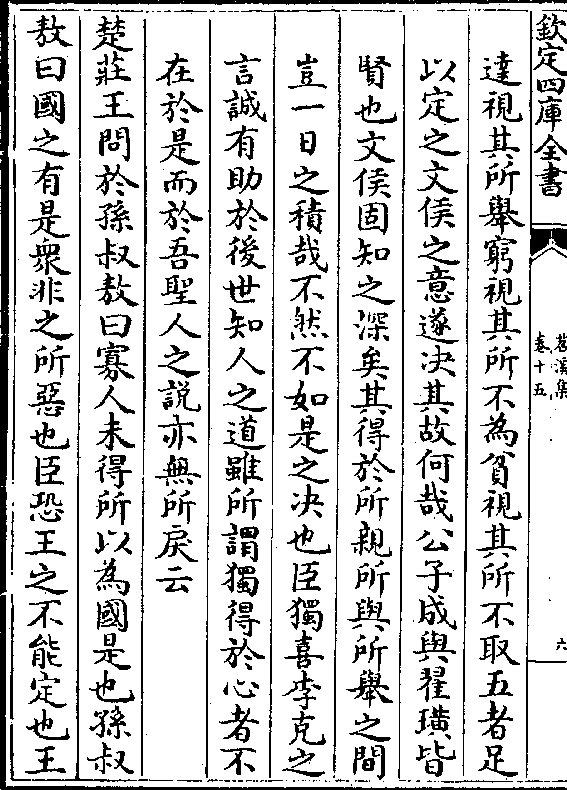 欽定四庫全書
苕溪集
卷十五
六
達視其所舉窮視其所不為貧視其所不取五者足
以定之文侯之意遂决其故何哉公子成與翟璜皆
賢也文侯固知之深矣其得於所親所與所舉之間
豈一日之積哉不然不如是之决也臣獨喜李克之
言誠有助於後世知人之道雖所謂獨得於心者不
在於是而於吾聖人之說亦無所戾云
楚莊王問於孫叔敖曰寡人未得所以為國是也孫叔
敖曰國之有是衆非之所惡也臣恐王之不能定也王